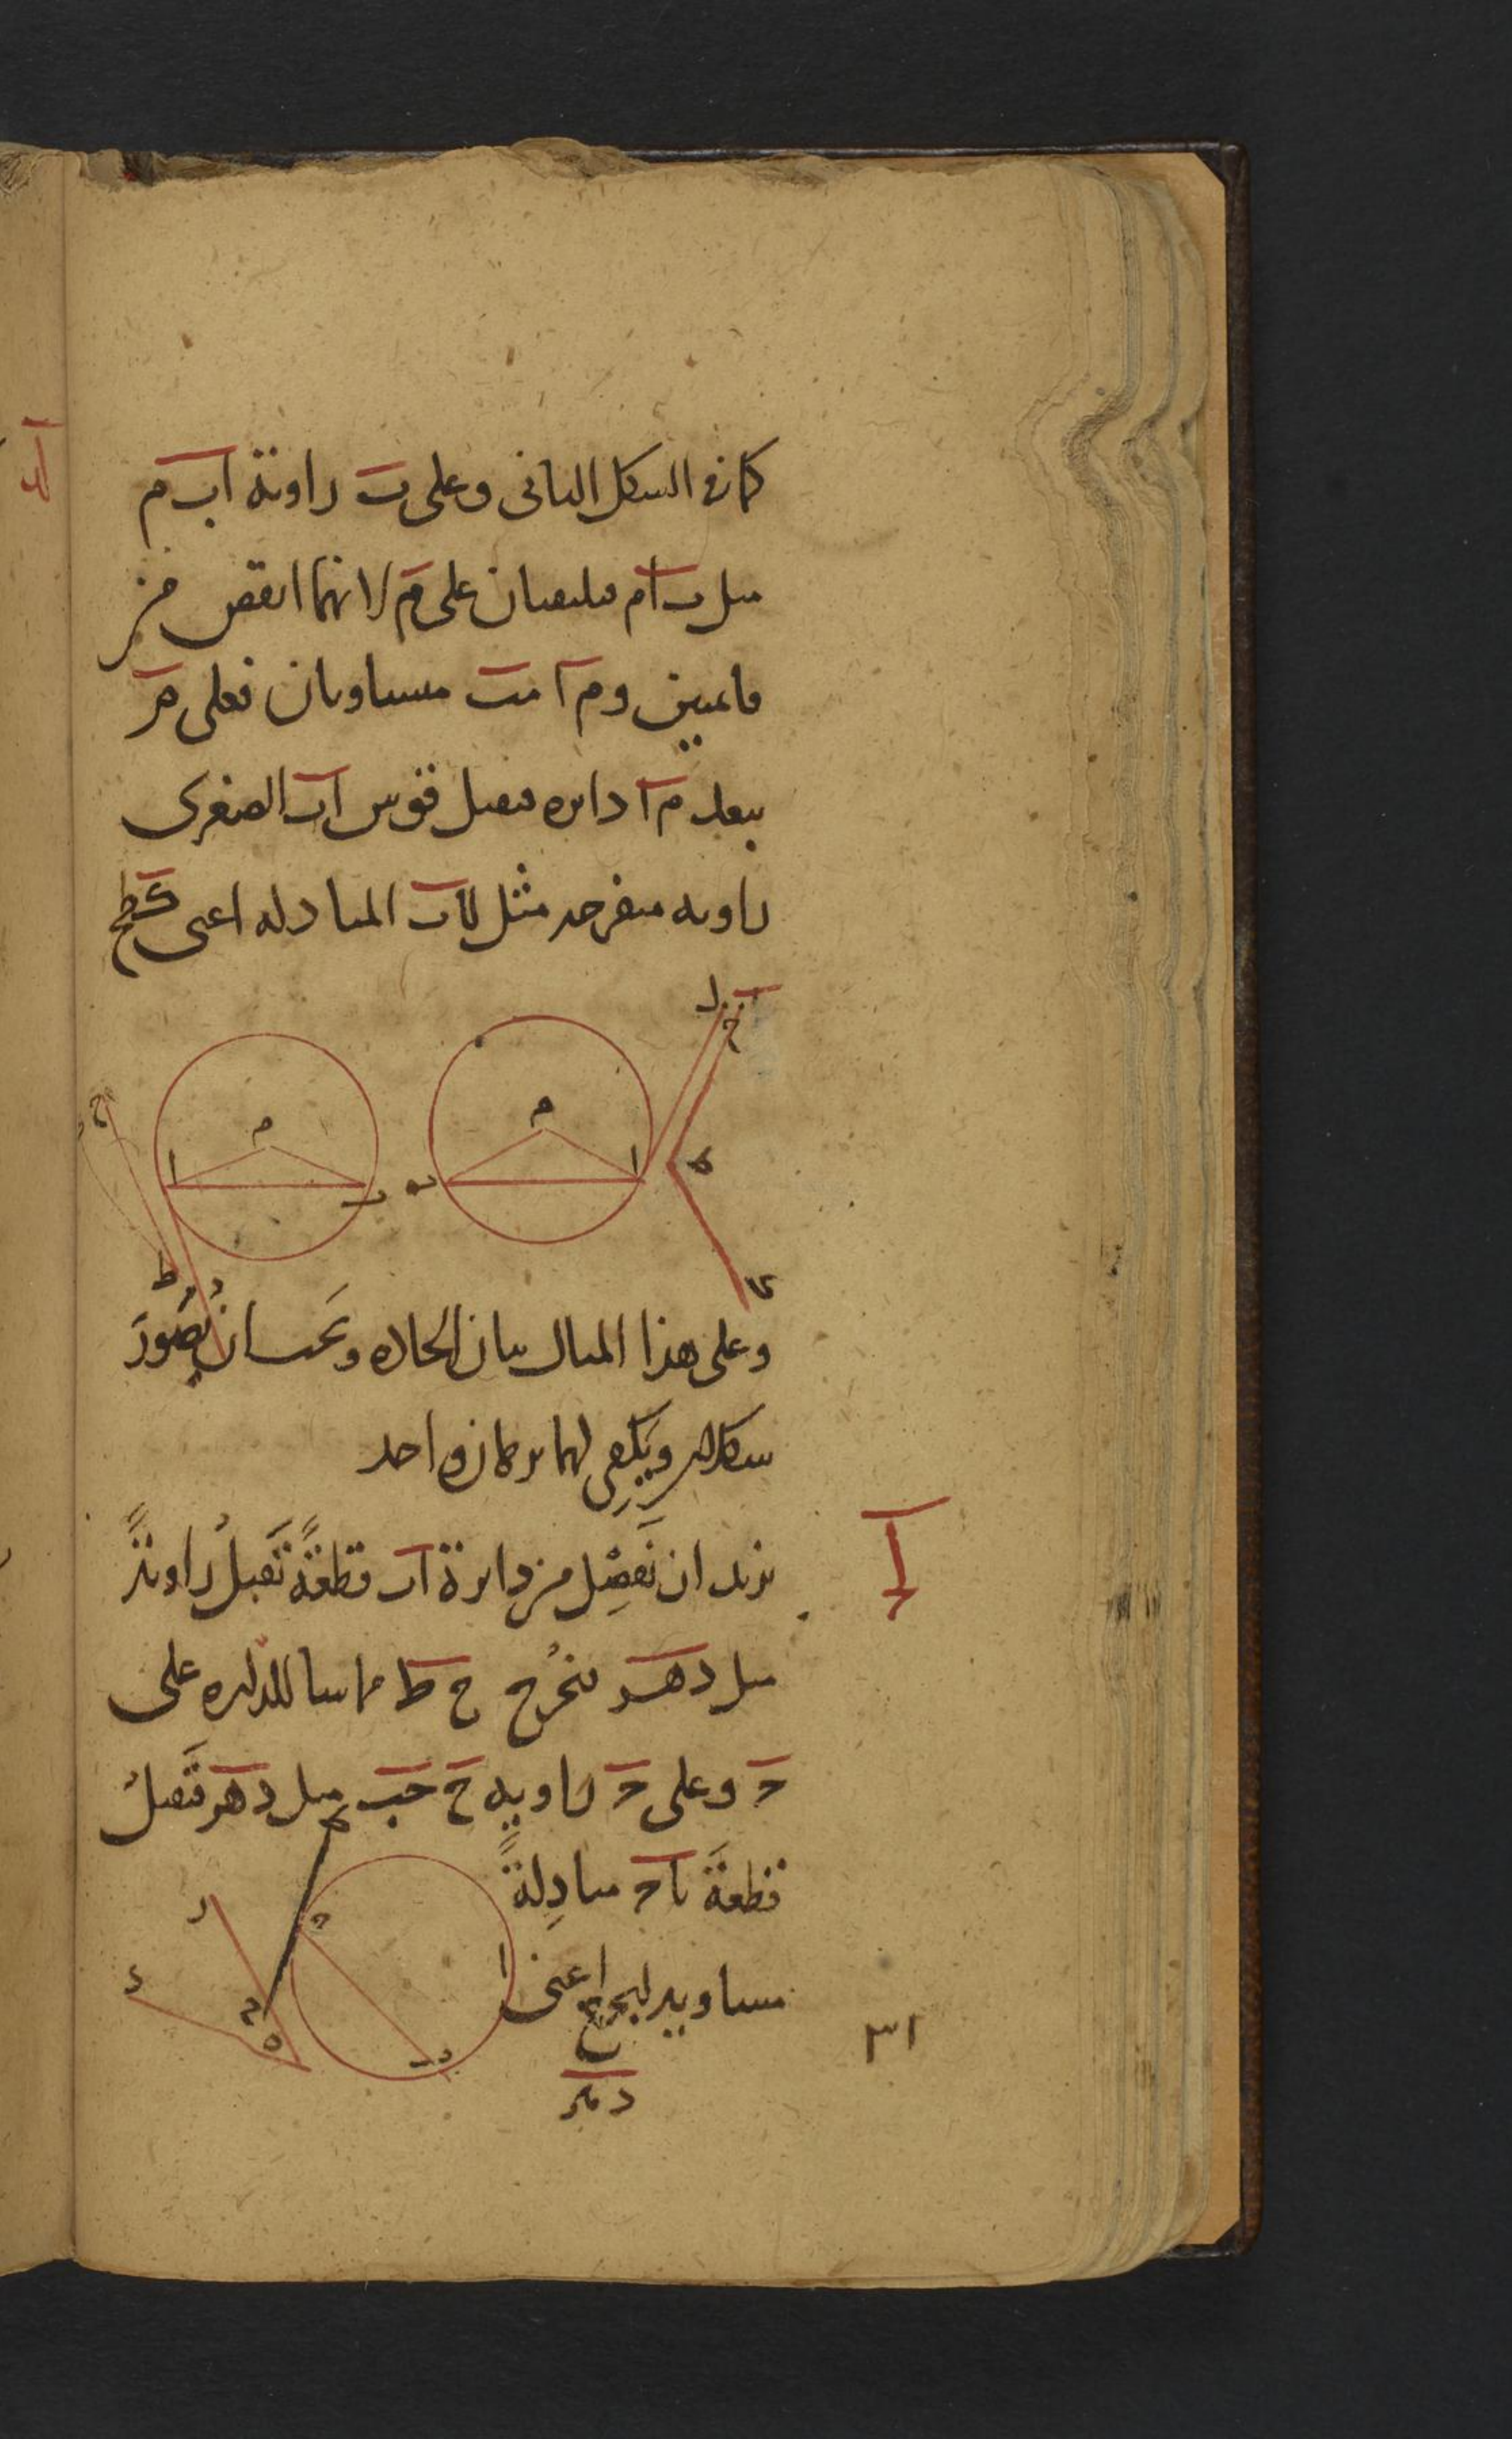 كما في السكل الثانى وعلى ب زاوية اب م
مثل ب ا م فيلتقيان على م لانهما انقص من
قايمتين و م ا م ب متساويان فعلى م
ببعد م ا دايره فيفصل قوس ا ب الصغرى
زاويه منفرجه مثل ل ا ب المبادله اعنى ك ط ح
ل ح
م م
ح ا ب ب ا ط
ط د ك
وعلى هذا المثال بيان الحاده ويجب ان يصور
شكلان ويكفى لهما برهان واحد
نريد ان نَفصِل من دايرة ا ب قطعةً تَقبلُ زاويةً
مثل د ه ر فنخرج ح ط مماسا للدايره على
ح وعلى ح زاويه ح ح ب مثل د ه ر فتقبل
قطعةَ ب ا ح مبادِلةً
ط ح ر ا
مساويه ل ب ح ح اعنى
د ح ه ب
٣١
د ه ر